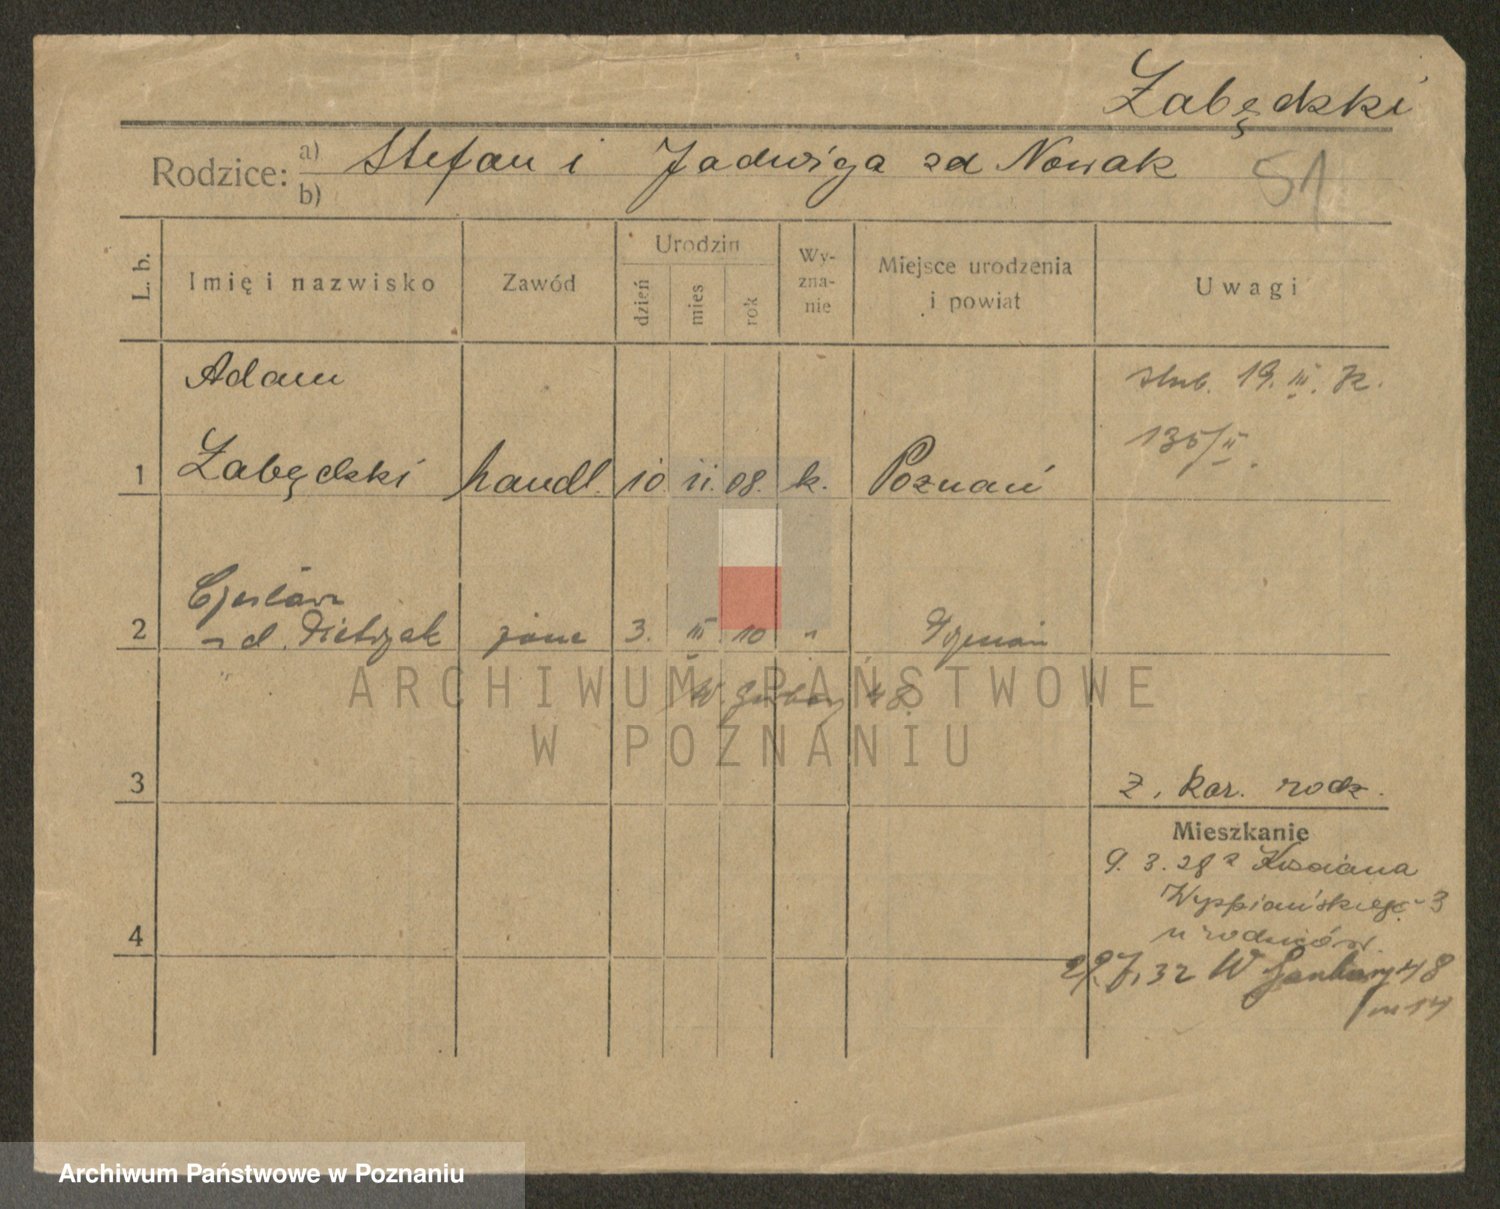 Łabędzki
Rodzice: a) Stefan i Jadwiga zd Nowak
b)
51
L. b. Imię i nazwisko Zawód Urodzin dzień mies rok Wy-zna-nie Miejsce urodzenia i powiat Uwagi
Adam
ślub. 19. III. 32.
135/II.
1 Łabędzki handl. 10. II. 08. k. Poznań
Czesława
2 zd. Pietrzak żona 3. III. 10 " Poznań
W. Garbary 48.
3
z. kar. rodz.
Mieszkanie
9. 3. 28 z Kościana
Wyspiańskiego 3
4
u rodziców
29. 7. 32 W Garbary 48
m 14
ARCHIWUM PAŃSTWOWE
W POZNANIU
Archiwum Państwowe w Poznaniu